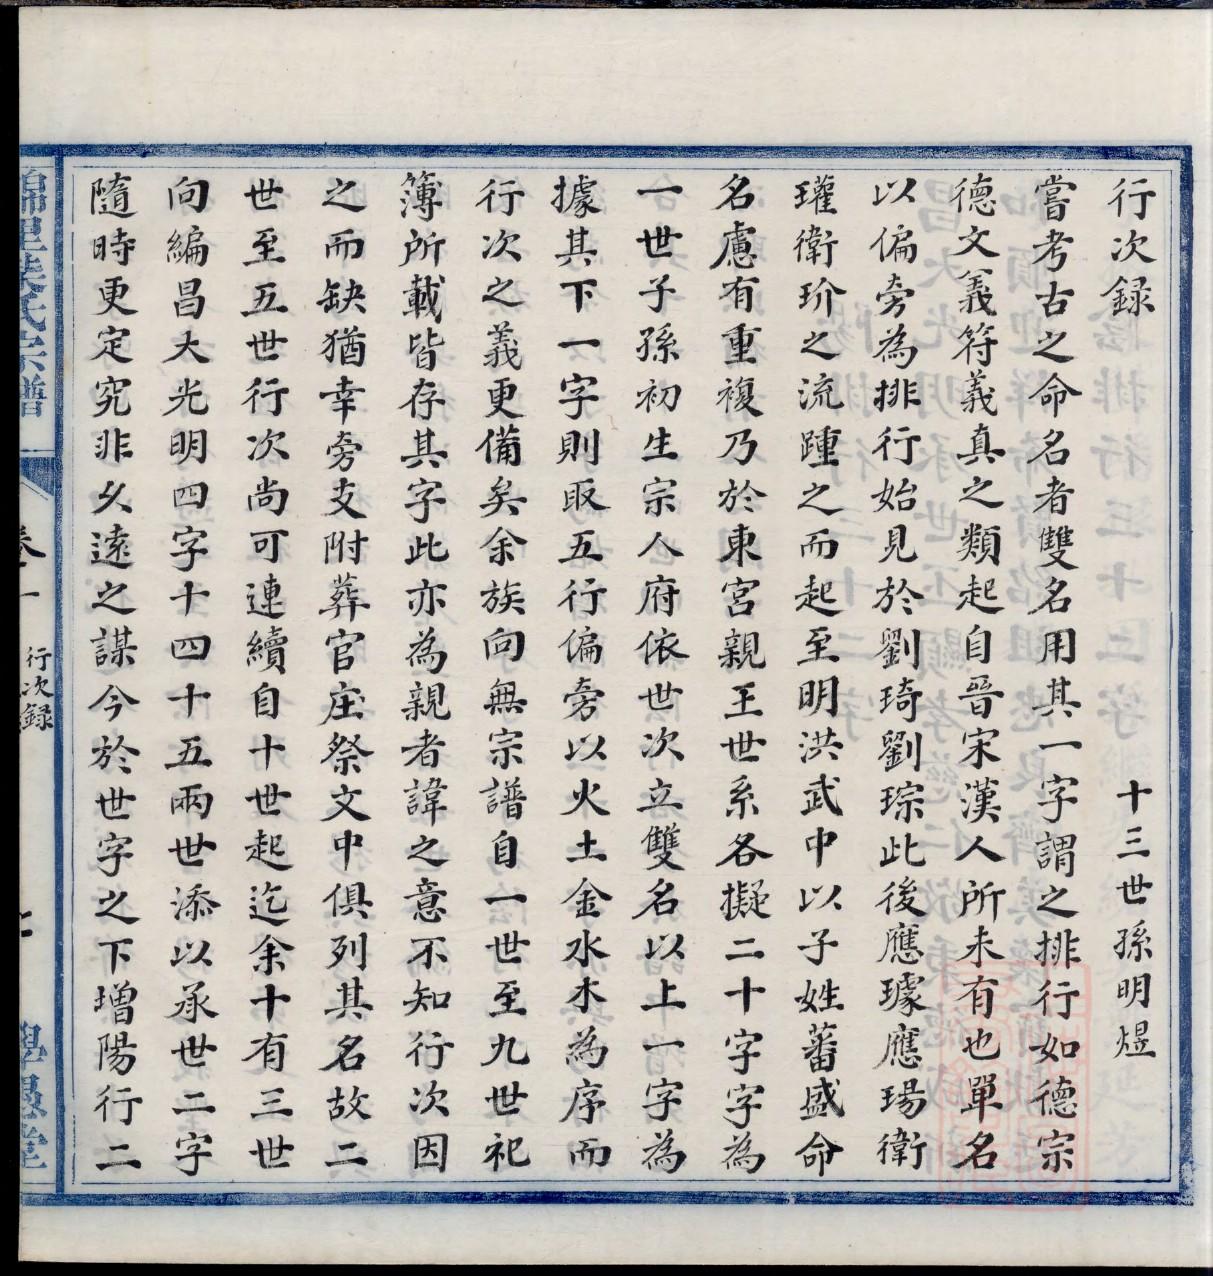 行次録
十三世孫明煜
嘗考古之命名者雙名用其一字謂之排行如德宗
德文義符義真之類起自晉宋漢人所未有也單名
以偏旁為排行始見於劉琦劉琮此後應璩應瑒衛
瓘衛玠之流踵之而起至明洪武中以子姓蕃盛命
名慮有重複乃於東宮親王世系各擬二十字字為
一世子孫初生宗人府依世次立雙名以上一字為
據其下一字則取五行偏旁以火土金水木為序而
行次之義更備矣余族向無宗譜自一世至九世祀
簿所載皆存其字此亦為親者諱之意不知行次因
之而缺猶幸旁支附葬官庄祭文中俱列其名故二
世至五世行次尚可連續自十世起迄余十有三世
向編昌大光明四字十四十五兩世添以承世二字
隨時更定究非久遠之謀今於世字之下增陽行二
氏宗譜
卷一
行次録
七